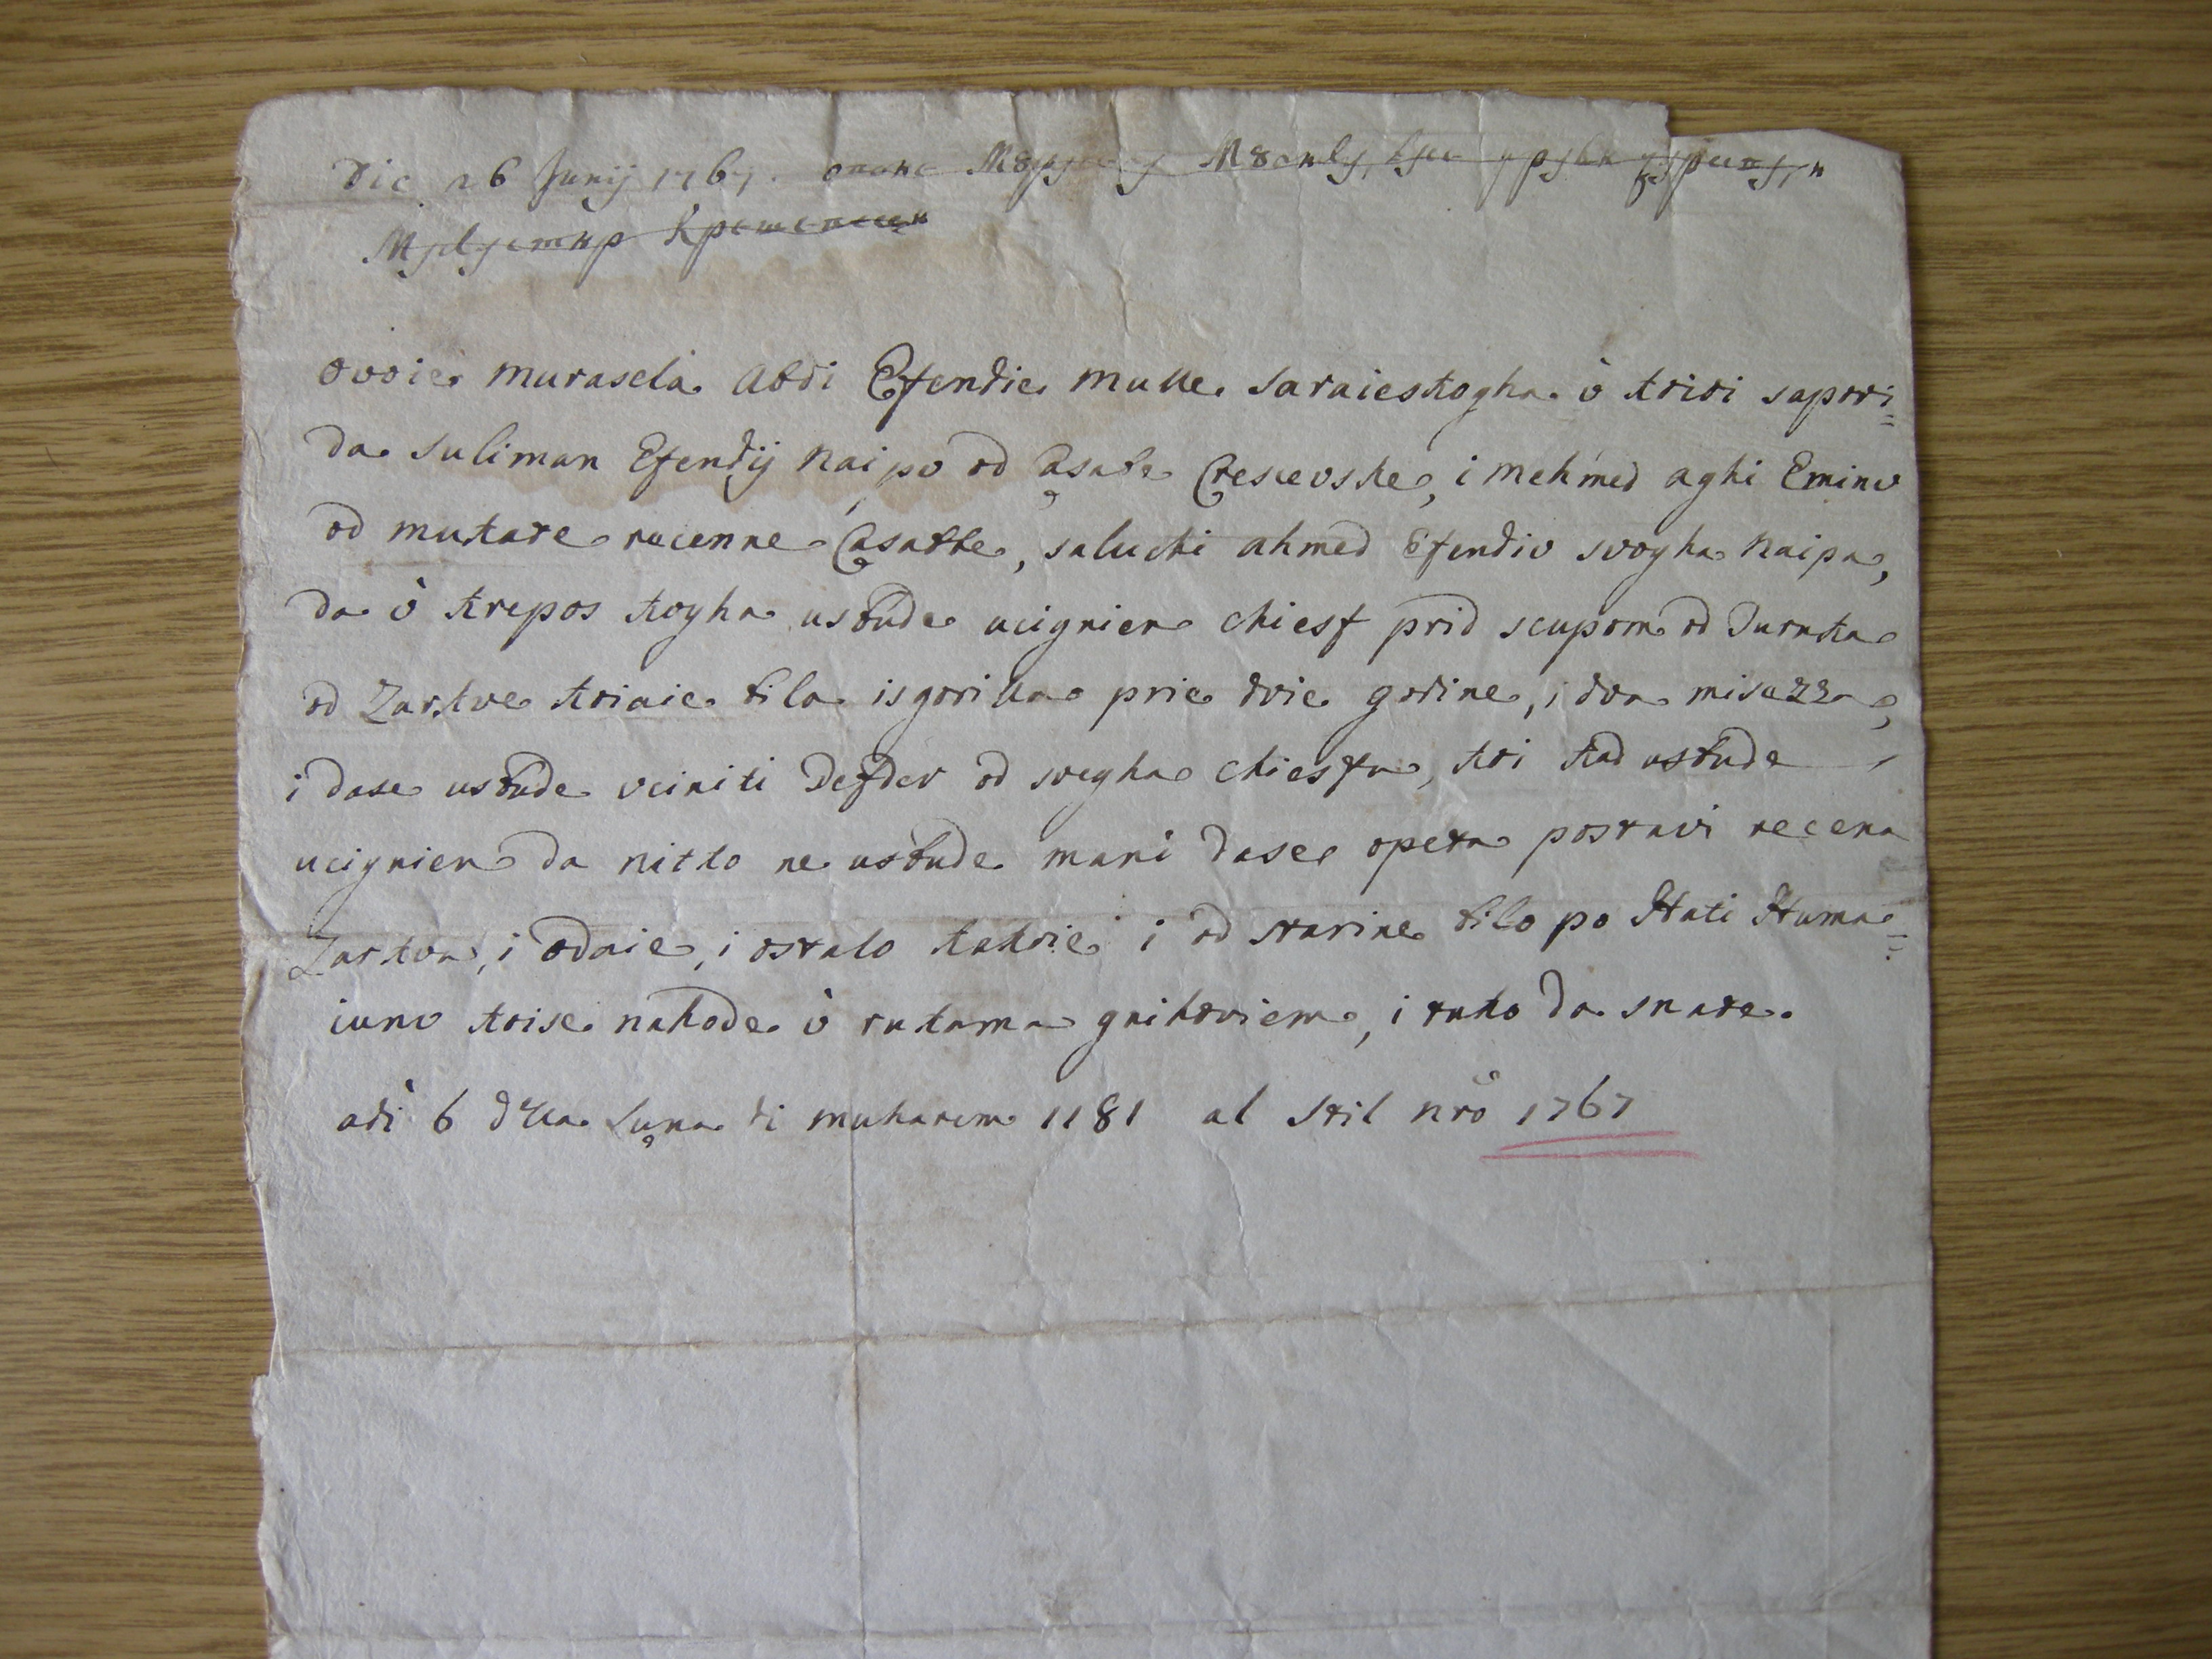 Die 26 Junij 1767.
ovoie murasela Abdi Efendie mulle saraieskogha ù koioi sapovi=
da suliman Efendij Naipo od Casate Crescevske, i Mehmed aghi Eminu
od mukate recenne Casatte, saluchi ahmed Efendiu svogha Naipa,
da ù krepos kogha usbude ucignien chiesf prid scupom od Turaka
od Zarkve koiaie bila isgorilla prie dvie godine, i dva misezza,
i dase usbude uciniti Defder od svegha chiesfa, koi kad usbude
ucignien da nitko ne usbude mani dase opeta postavi recena
Zarkva, i odaie, i ostalo kakoie i od starine bilo po Hati Huma=
iunu koise nahode ù rukama gnihoviem, i tako da snate.
adi 6 della Luna di muharem 1181 al stil nr̃o 1767